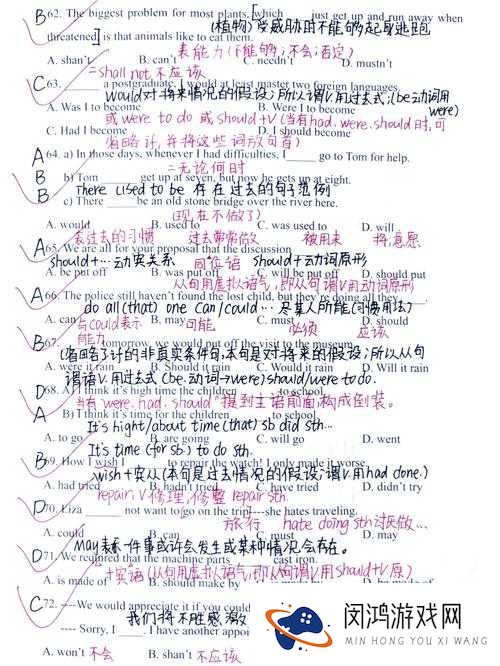 B 62. The biggest problem for most plants, [which ___ just get up and run away when
(植物)受威胁时不能够起身逃跑
threatened] is that animals like to eat them.
表能力(不能够;不会;否定)
A. shan't B. can't C. needn't D. mustn't
=shall not 不应该
C 63. ___ a postgraduate, I would at least master two foreign languages.
would对将来情况的假设;所以谓V.用过去式;(be动词用were)
A. Was I to become B. Were I to become
或 were to do 或 should+V(当有had. were. should时,可
C. Had I become D. I should become
省略 if, 并将这些词放句首)
A 64. a) In those days, whenever I had difficulties, I ___ go to Tom for help.
=无论何时
B b) Tom ___ get up at seven, but now he gets up at eight.
There used to be 存在过去的句子范例
B c) There ___ be an old stone bridge over the river here.
(现在不做了)
A. would B. used to C. was used to D. will
表过去的习惯 过去常常做 被用来 将,意愿
A 65. We are all for your proposal that the discussion
should+…动宾关系 同位语 should+动词原形
A. be put off B. was put off C. will be put off D. should put
从句用虚拟语气,即从句谓V用动词原形
A 66. The police still haven't found the lost child, but they're doing all they ___.
do all (that) one can/could… 尽某人所能(习惯用法)
A. can B. may C. must D. should
与could表示能力 可能 必须 应该
B 67. ___ tomorrow, we would put off the visit to the museum.
(省略了if的非真实条件句,本句是对将来的假设;所以从句
A. were it rain B. Should it rain C. Would it rain D. Will it rain
谓语V.用过去式(be.动词→were) should/were to do.
D 68. A) I think it's high time the children ___ to school.
当有"were. had. should"提到主语前面,构成倒装。
A B) I think it's time for the children ___ to school.
It's hight/about time (that) sb did sth…
A. to go B. are going C. will go D. went
It's time (for sb.) to do sth.
B 69. How I wish I ___ to repair the watch! I only made it worse.
wish+宾从(本句是过去情况的假设;谓V.用had done.)
A. had tried B. hadn't tried C. have tried D. didn't try
repair. V 修理,修整 repair sth.
D 70. Liza ___ not want to go on the trip]---she hates traveling.
旅行 hate doing sth 讨厌做…
A. could B. can C. must D. may
May表示一件事或许会发生或某种情况会存在。
D 71. We required the machine parts ___ cast iron.
+宾语(从句用虚拟语气,即从句谓V用should+V原)
A. is made of B. should make by
C 72. ----We would appreciate it if you could
我们将不胜感激
---- Sorry, I ___. I have another appoi
A. won't 不会 B. shan't 不应该
闵鸿游戏网
MIN HONG YOU XI WANG